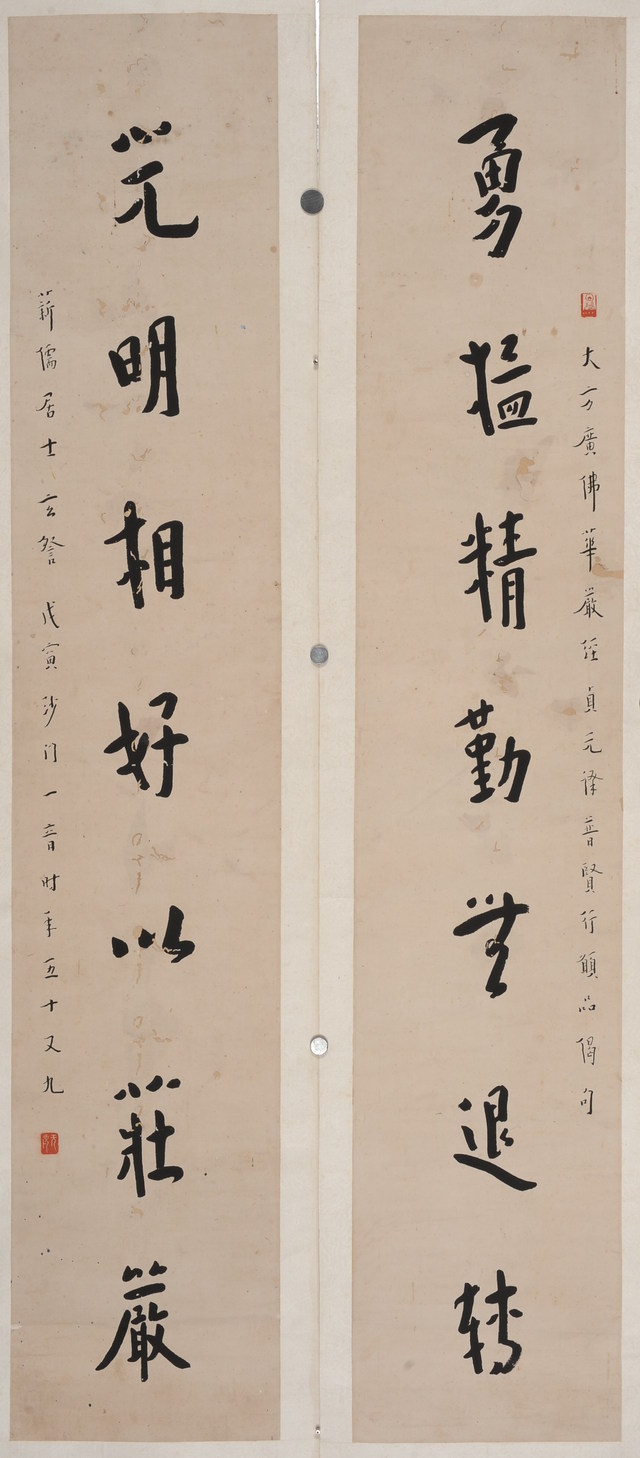 大方廣佛華嚴經貞元譯普賢行願品偈句
勇猛精勤無退轉
光明相好以莊嚴
儒居士玄詧 戊寅沙门一音时年五十又九